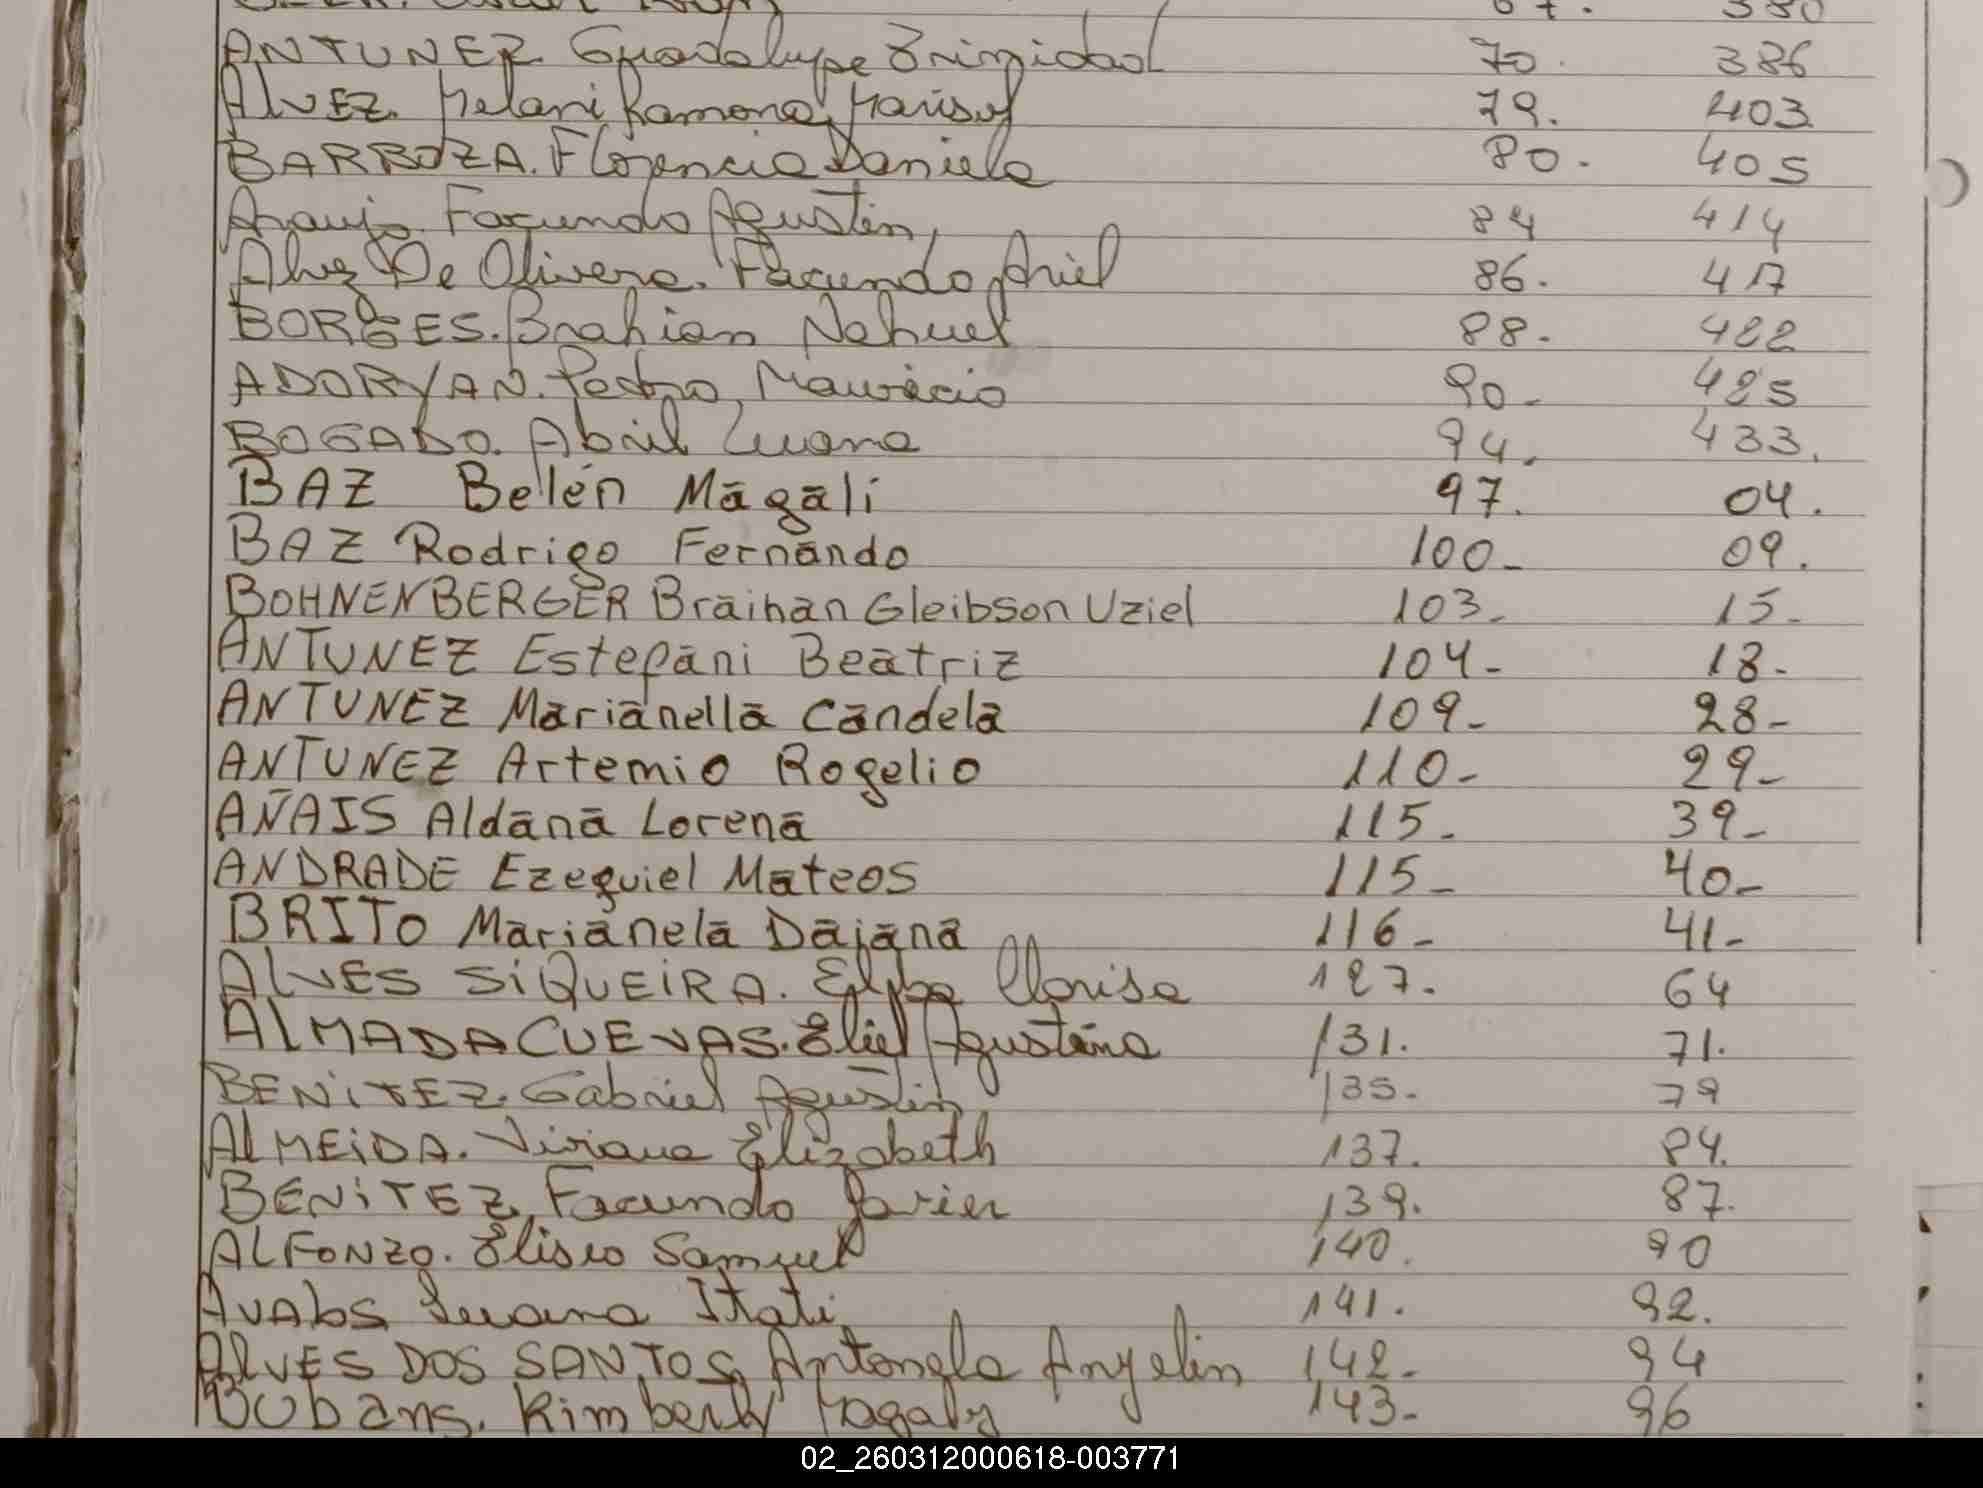 ANTUNEZ Guadalupe Trinidad 70. 386
AlvEZ. Melani Ramona Marisol 79. 403
BARBOZA. Florencia Daniela 80. 405
Araujo Facundo Agustin, 84 414
Alvez De Olivera. Facundo Ariel 86. 417
BORGES. Brahian Nahuel 88. 422
ADORYAN. Pedro Mauricio 90- 425
BOGADO. Abril Luana 94. 433.
BAZ Belén Magali 97. 04.
BAZ Rodrigo Fernando 100- 09.
BOHNENBERGER Braihan Gleibson Uziel 103- 15-
ANTUNEZ Estefani Beatriz 104- 18-
ANTUNEZ Marianella Candela 109- 28-
ANTUNEZ Artemio Rogelio 110- 29-
AÑAIS Aldana Lorena 115- 39-
ANDRADE Ezequiel Mateos 115- 40-
BRITO Marianela Daiana 116- 41-
AlvES SiQUEiRA. Clarisa 127. 64
AlMADA CUEVAS. Eliel Agustina 131. 71.
BENiTEZ. Gabriel Agustin 135. 79
AlMEiDA. Viviana Elizabeth 137. 84.
BENiTEZ Facundo Javier 139. 87.
ALFONZO. Eliseo Samuel 140. 90
Avalos Luana Itati 141. 92.
AlvES DOS SANTOS Antonela Anyelin 142- 94
Kimberly Magaly 143- 96
02_260312000618-003771